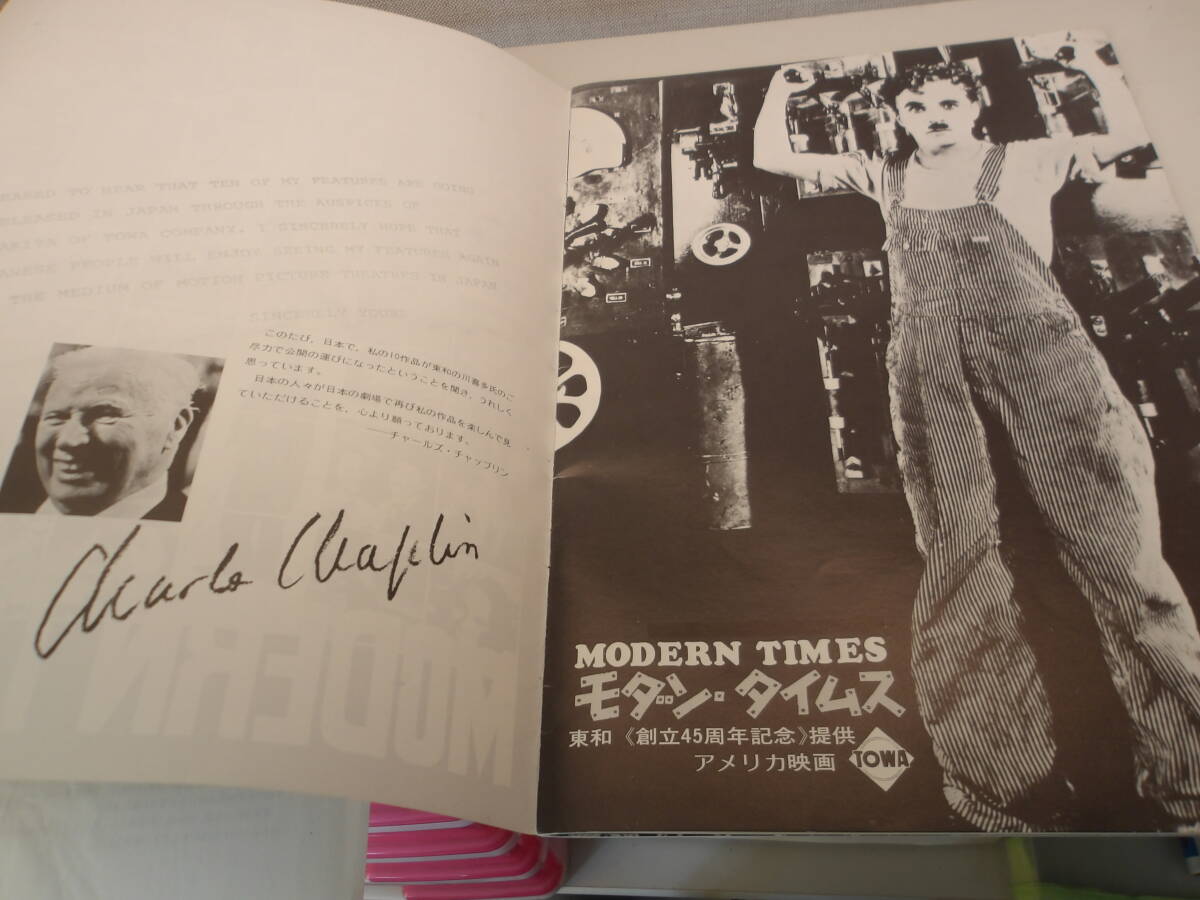 EASED TO HEAR THAT TEN OF MY FEATURES ARE GOING
ELEASED IN JAPAN THROUGH THE AUSPICES OF
AKITA OF TOWA COMPANY. I SINCERELY HOPE THAT
ANESE PEOPLE WILL ENJOY SEEING MY FEATURES AGAIN
THE MEDIUM OF MOTION PICTURE THEATRES IN JAPAN
SINCERELY YOURS
このたび，日本で，私の10作品が東和の川喜多氏のご
尽力で公開の運びになったということを聞き，うれしく
思っています。
日本の人々が日本の劇場で再び私の作品を楽しんで見
ていただけることを，心より願っております。
──チャールズ・チャップリン
Charles Chaplin
MODERN T
MODERN TIMES
モダン・タイムス
東和《創立45周年記念》提供
アメリカ映画 TOWA